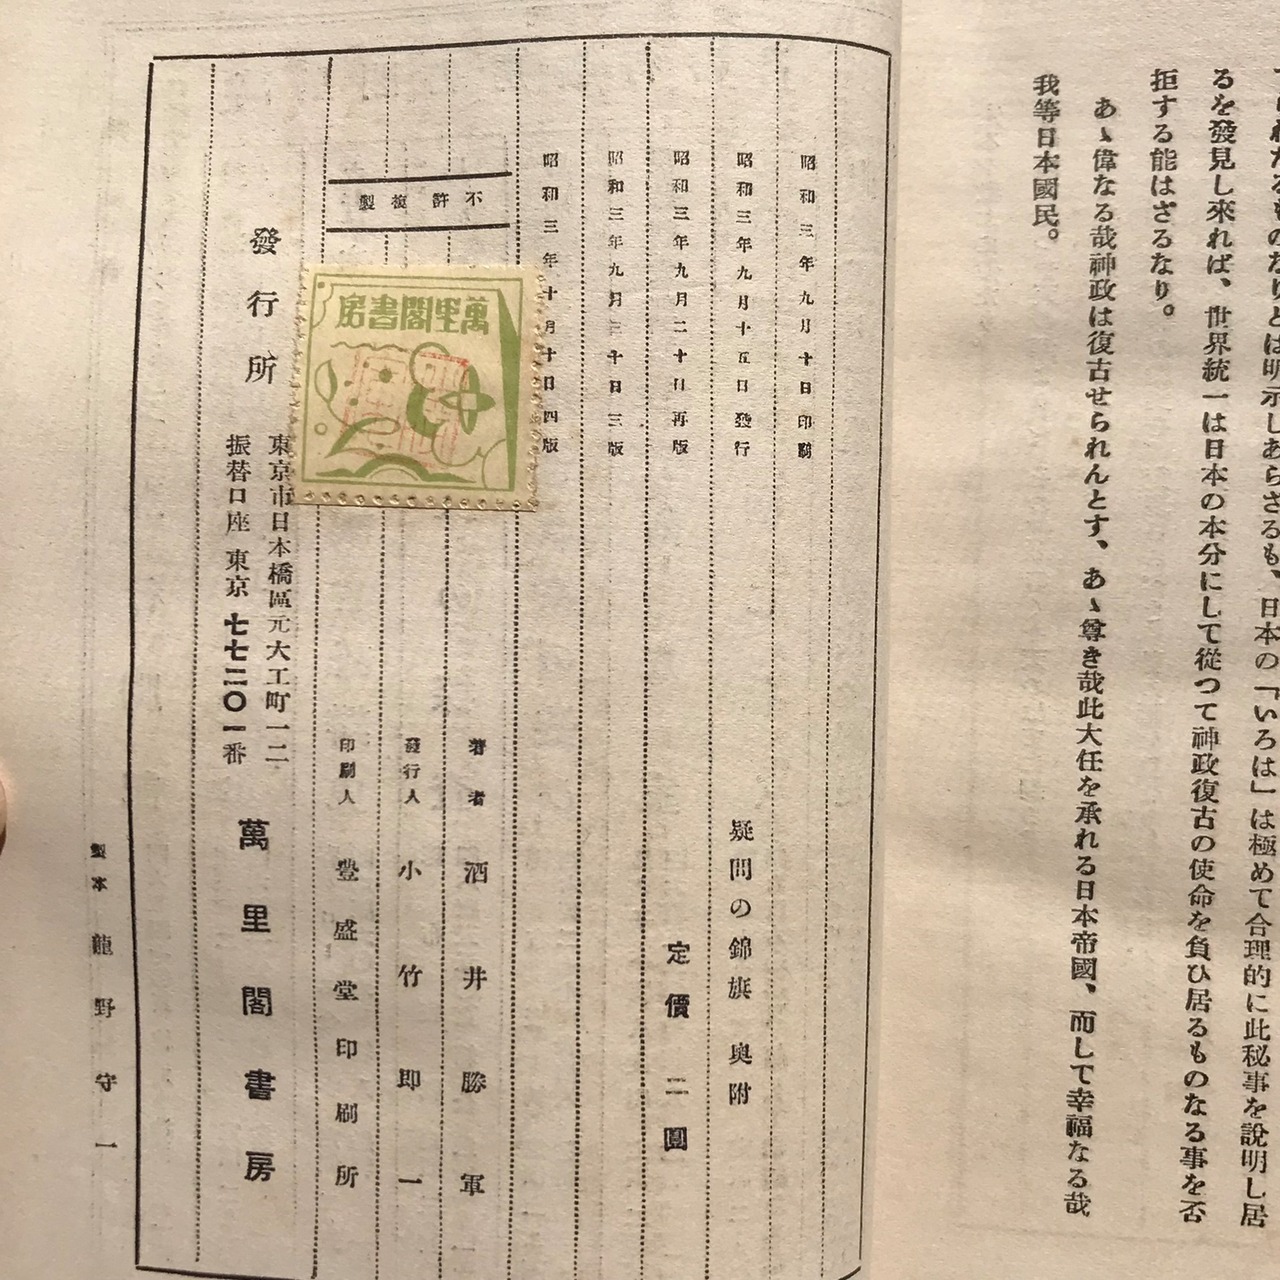 るものなりとは明示しあらざるも、日本の「いろは」は極めて合理的に此秘事を說明し居
るを發見し來れば、世界統一は日本の本分にして從つて神政復古の使命を負ひ居るものなる事を否
拒する能はざるなり。
あゝ偉なる哉神政は復古せられんとす、あゝ尊き哉此大任を承れる日本帝國、而して幸福なる哉
我等日本國民。
昭和三年九月十日印刷
昭和三年九月十五日發行
昭和三年九月二十日再版
昭和三年九月三十日三版
昭和三年十月十日四版
疑問の錦旗 奥附
定價二圓
不許複製
萬里閣書房
著者 酒井勝軍
發行人 小竹即一
印刷人 豊盛堂印刷所
發行所
東京市日本橋區元大工町一二
振替口座東京七七二〇一番
萬里閣書房
製本 龍野守一